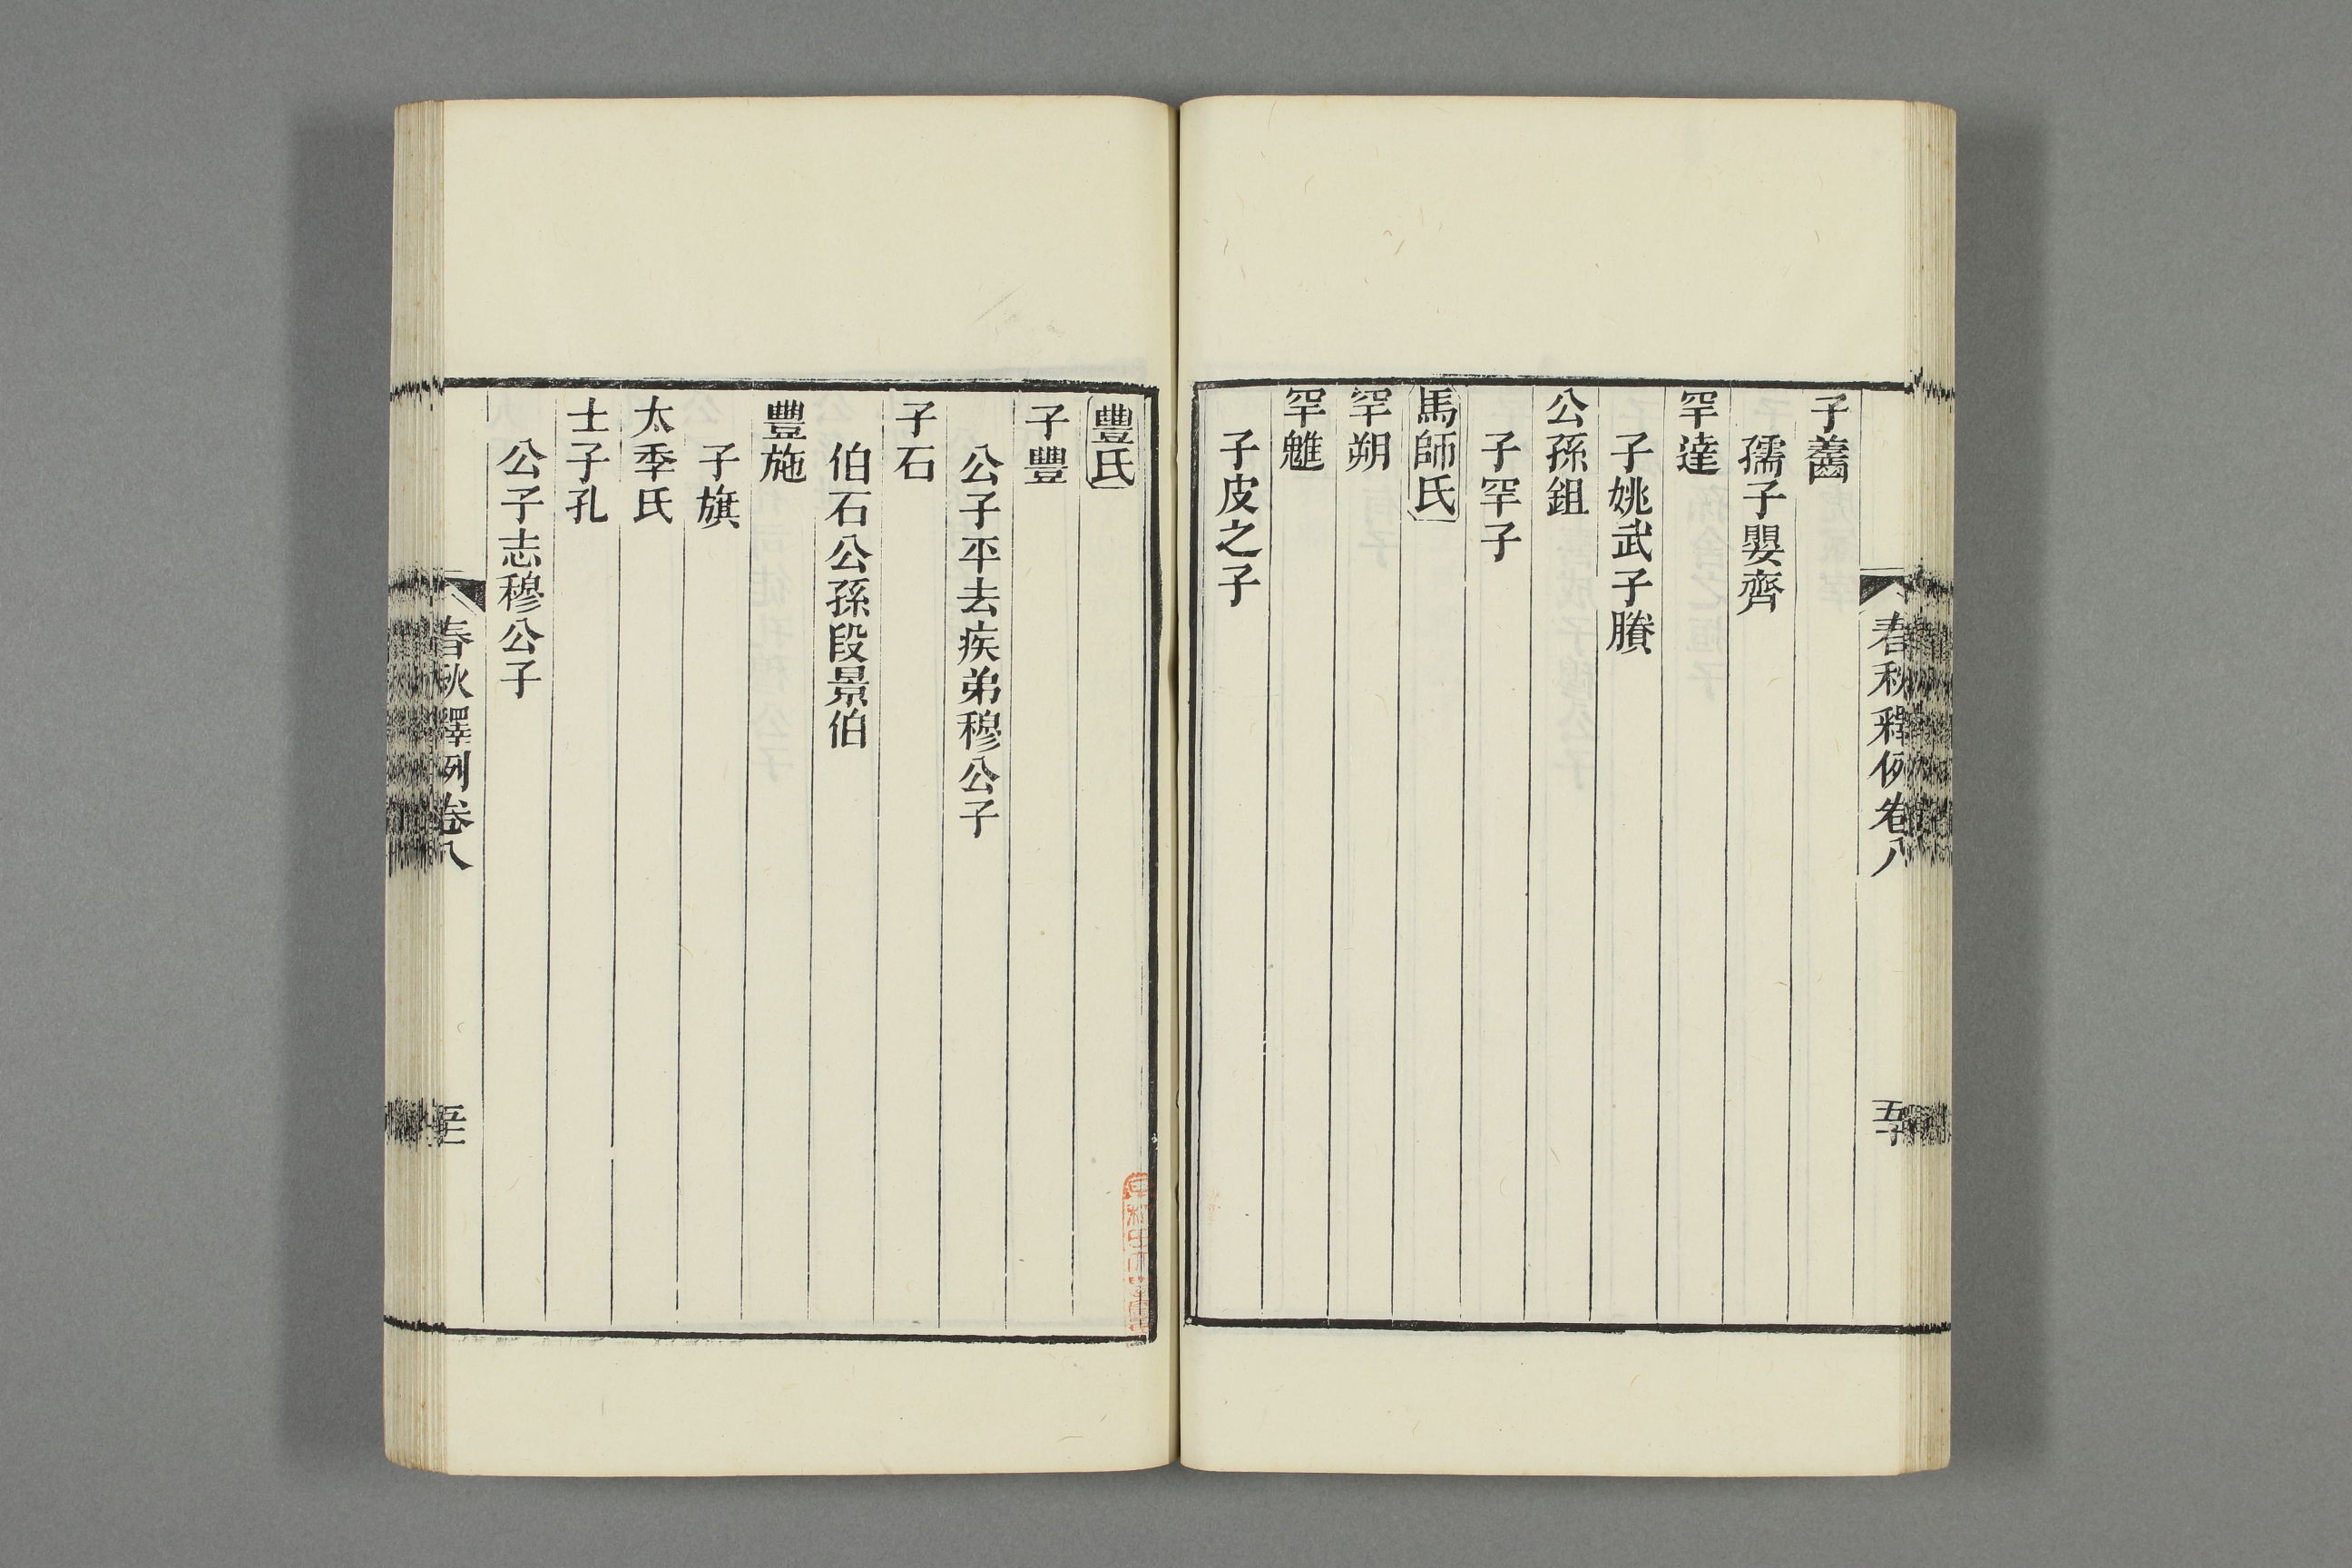 子齹
孺子嬰齊
罕達
子姚武子賸
公孫鉏
子罕子
馬師氏
罕朔
罕魋
子皮之子
春秋釋例卷八
豐氏
子豐
公子平去疾弟穆公子
子石
伯石公孫段景伯
豐施
子旗
太季氏
士子孔
公子志穆公子
春秋釋例卷八